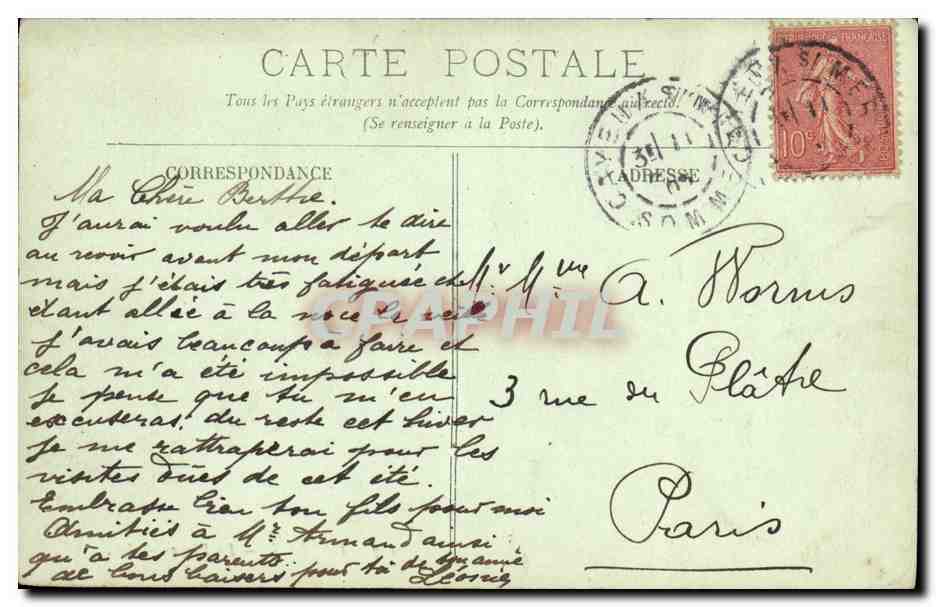 CARTE POSTALE
Tous les Pays étrangers n'acceptent pas la Correspondance au recto.
(Se renseigner à la Poste).
CORRESPONDANCE
ADRESSE
Ma Chère Berthe.
J'aurai voulu aller te dire
au revoir avant mon départ
mais j'étais très fatiguée et
étant allée à la noce la veille
j'avais beaucoup a faire et
cela m'a été impossible
je pense que tu m'en
excuseras, du reste cet hiver
je me rattraperai pour les
visites dûes de cet été.
Embrasse bien ton fils pour moi
Amitiés à Mr Armand ainsi
qu'à tes parents
de bons baisers pour toi de ton amie
Léonie
Mr Mme A. Worms
3 rue du Plâtre
Paris
10c
CAYEUX S/MER
SOMME
CPAPHIL